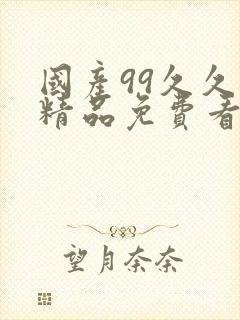 國産99久久
精品免費看
望月奈奈